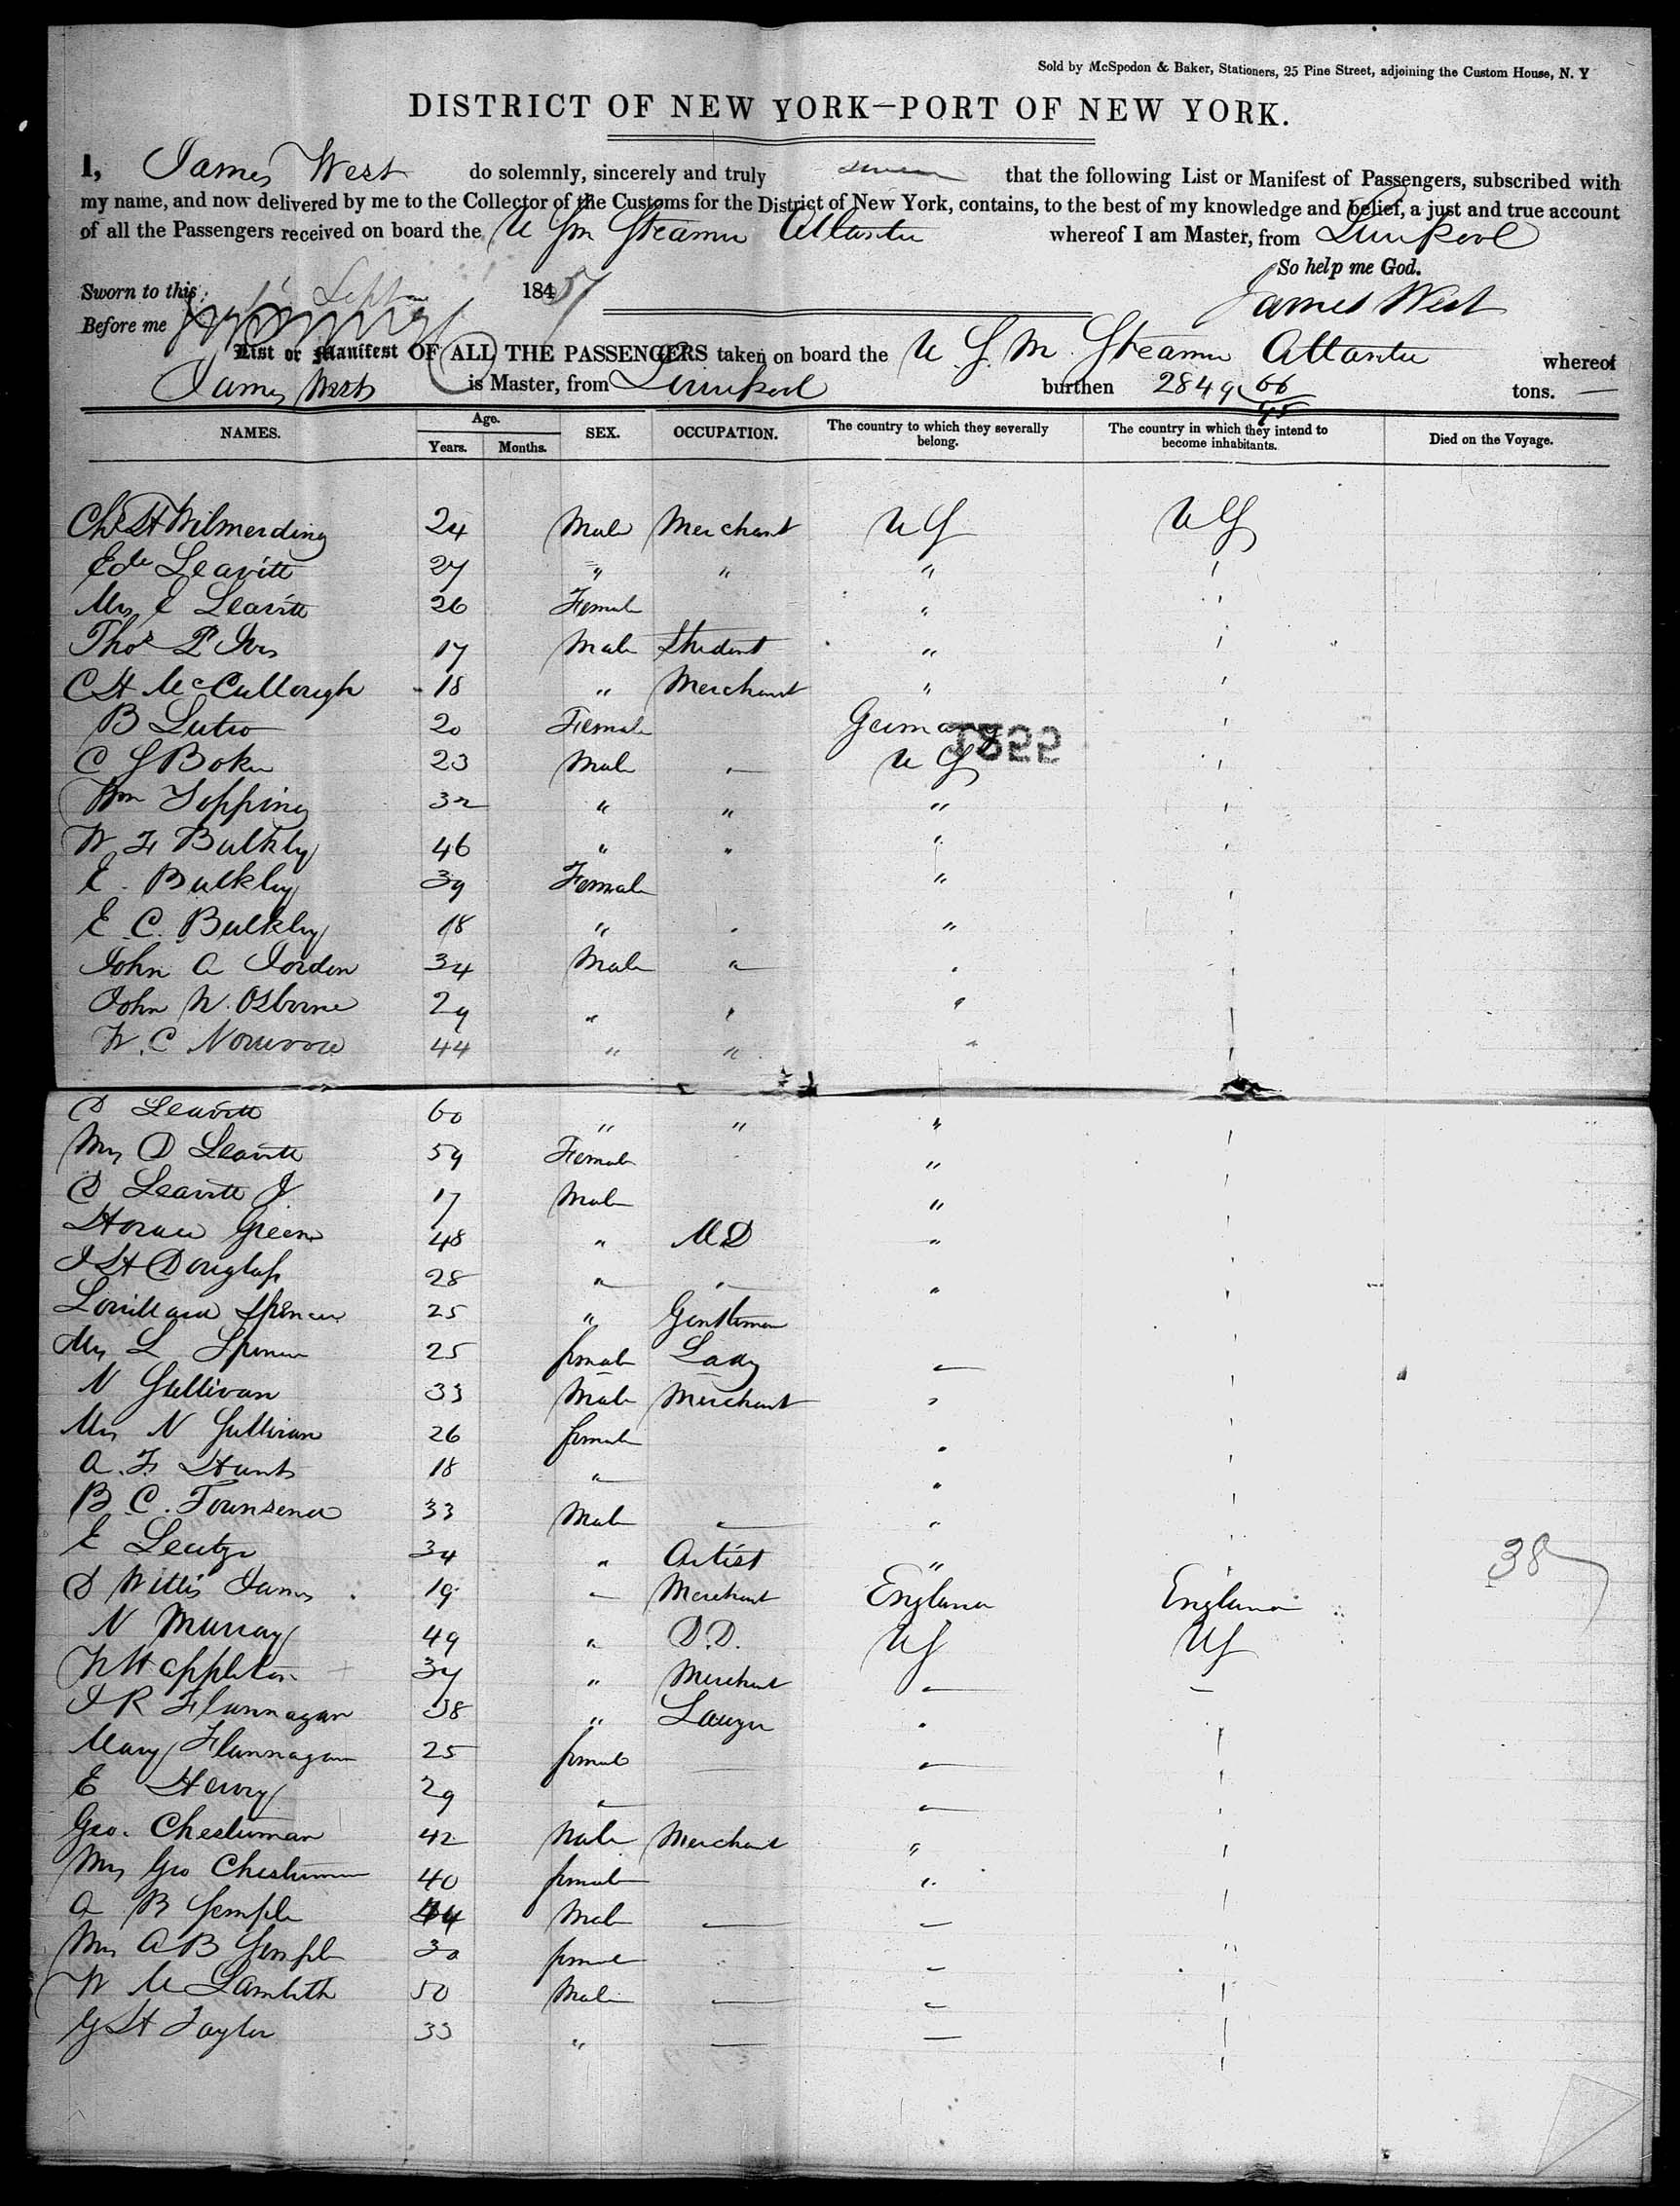 Sold by McSpedon & Baker, Stationers, 25 Pine Street, adjoining the Custom House, N. Y
DISTRICT OF NEW YORK—PORT OF NEW YORK.
I, James West do solemnly, sincerely and truly swear that the following List or Manifest of Passengers, subscribed with
my name, and now delivered by me to the Collector of the Customs for the District of New York, contains, to the best of my knowledge and belief, a just and true account
of all the Passengers received on board the U S M Steamer Atlantic whereof I am Master, from Liverpool
So help me God.
Sworn to this Sept 1851
James West
Before me
List or Manifest OF ALL THE PASSENGERS taken on board the U. S. M. Steamer Atlantic whereof
James West is Master, from Liverpool burthen 2849 66/95 tons.
NAMES. Age. Years. Months. SEX. OCCUPATION. The country to which they severally belong. The country in which they intend to become inhabitants. Died on the Voyage.
Chs H Wilmerding 24 Male Merchant U S U S
Edw Leavitt 27 " " "
Mrs E Leavitt 26 Female "
Thos P Ives 17 Male Student "
C H McCullough 18 " Merchant "
B Lutro 20 Female Germany
1522
C S Boker 23 Male " U S
Wm Topping 32 " " "
W F Bulkley 46 " " "
E. Bulkley 39 Female "
E. C. Bulkley 18 " "
John A Jordon 34 Male " "
John W. Osborne 29 " " "
W. C. 44 " " "
D Leavitt 60 " " "
Mrs D Leavitt 59 Female "
D Leavitt J 17 Male "
Horace Green 48 " M D "
J H Douglass 28 " " "
Lorillard Spencer 25 " Gentleman
Mrs L Spencer 25 female Lady "
N Sullivan 33 Male Merchant "
Mrs N Sullivan 26 female "
A. F. Hunt 18 " "
B. C. Townsend 33 Male " "
E Leutze 34 " Artist "
38
D Willis James 19 " Merchant England England
N Murray 49 " D.D. U S U S
W H Appleton 37 " Merchant " "
J R Flannagan 38 " Lawyer "
Mary Flannagan 25 female "
E Henry 29 " "
Geo. Chesterman 42 Male Merchant "
Mrs Geo Chesterman 40 female "
A B Semple 44 Male " "
Mrs A B Semple 30 female "
W M Lambeth 50 Male " "
G H Taylor 33 " " "